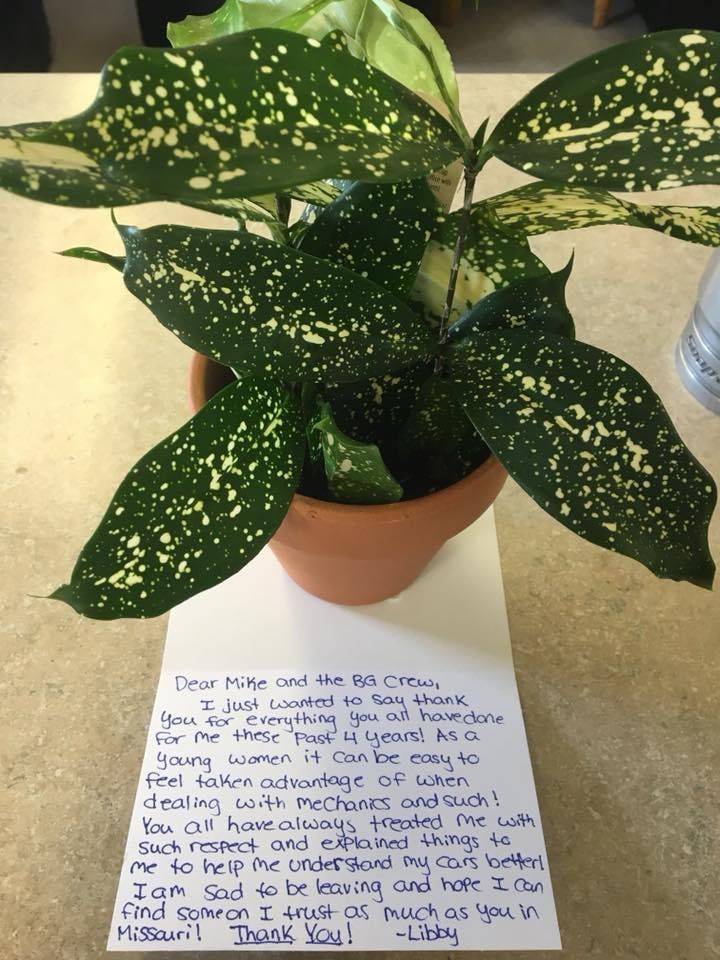 Dear Mike and the BG Crew,
I just wanted to say thank
you for everything you all have done
for me these past 4 years! As a
young women it can be easy to
feel taken advantage of when
dealing with mechanics and such!
You all have always treated me with
such respect and explained things to
me to help me understand my cars better!
I am sad to be leaving and hope I can
find someon I trust as much as you in
Missouri! Thank You! -Libby